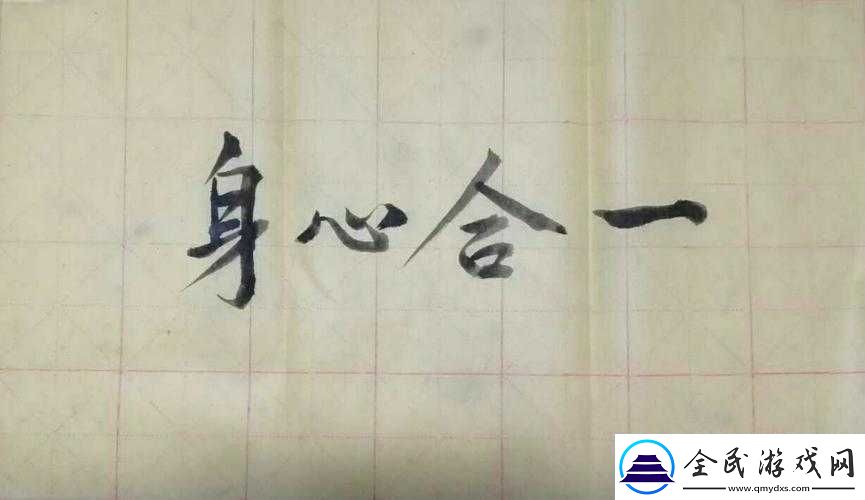 身心合一
全民游戏网
www.qmydxs.com